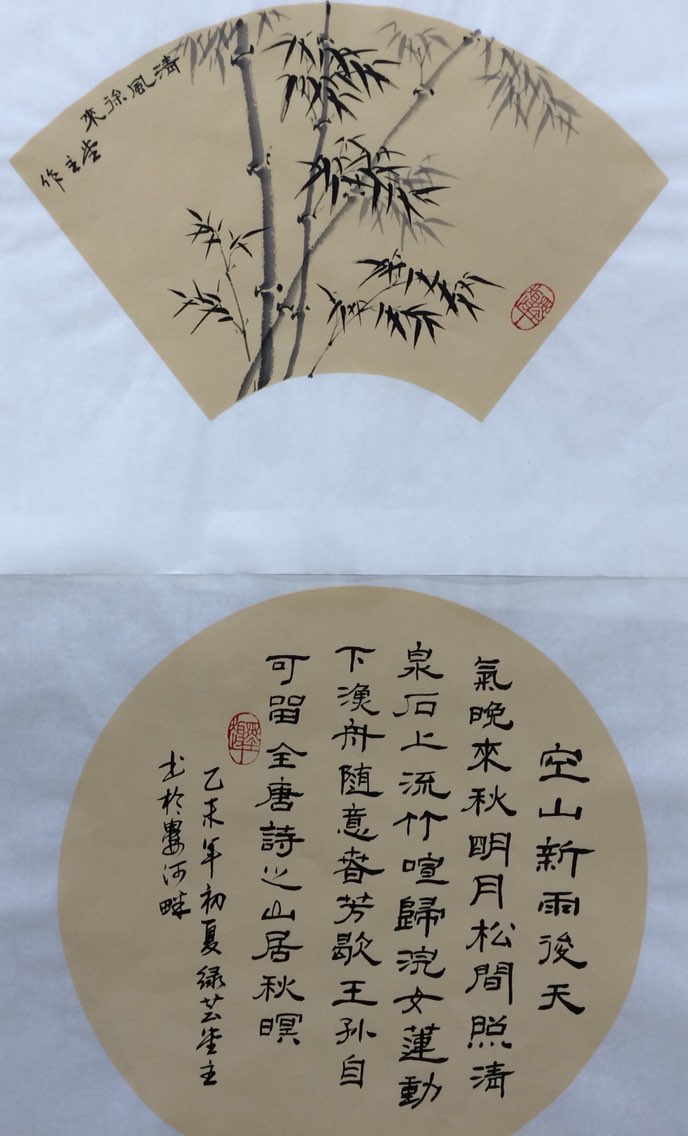 清風徐來
堂主
作
空山新雨後天
氣晚來秋明月松間照清
泉石上流竹喧歸浣女蓮動
下漁舟隨意春芳歇王孫自
可留全唐詩之山居秋暝
乙未年初夏緑芸堂主
书於婁河畔